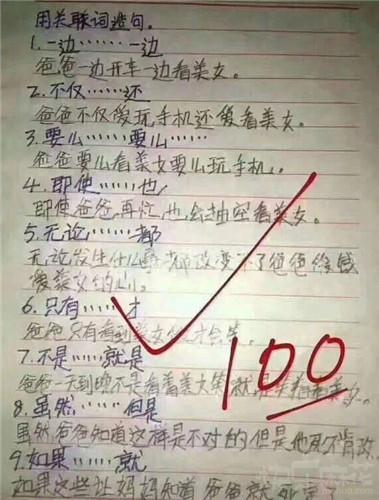 用关联词造句。
1.一边……一边
爸爸一边开车一边看美女。
2.不仅……还
爸爸不仅爱玩手机还爱看美女。
3.要么……要么……
爸爸要么看美女要么玩手机。
4.即使……也
即使爸爸再忙也会抽空看美女。
5.无论……都
无论发生什么 都改变不了爸爸
爱美女的心。
6.只有……才
爸爸只有看到美女 才会笑。
7.不是……就是
爸爸一天到晚不是看着美女笑就是
8.虽然……但是
虽然爸爸知道这样是不对的但是他死不肯改。
9.如果……就
如果这些让妈妈知道爸爸就死
100